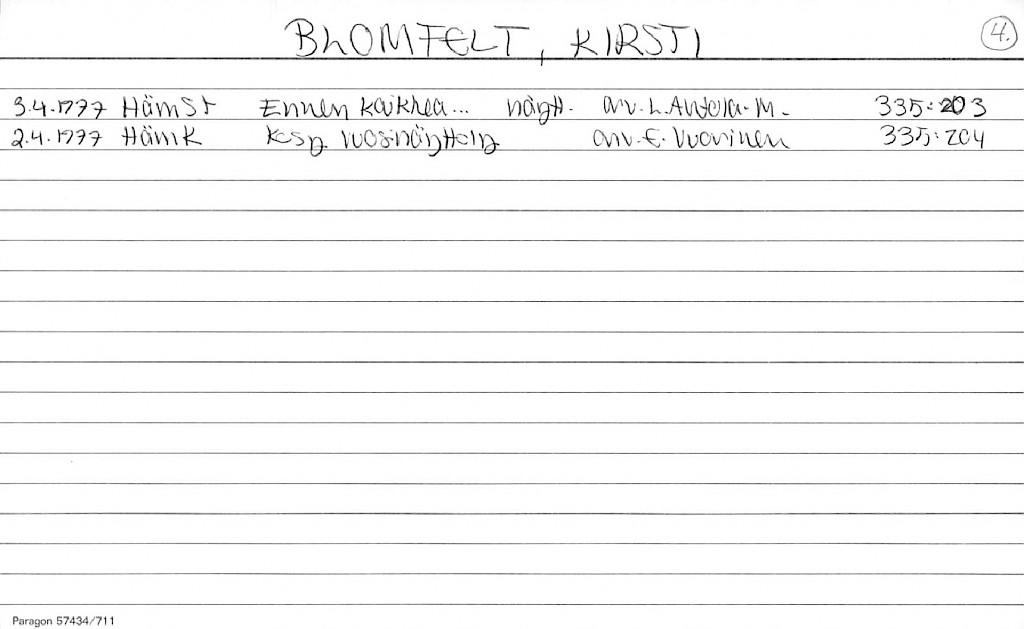 BLOMFELT, KIRSTI 4.
3.4.1977 HämSt Ennen kaikkea... näytt. arv. L. Anttila-M. 335:203
2.4.1977 HämK Ksp. vuosinäyttely arv. E. Vuorinen 335:204
Paragon 57434/711